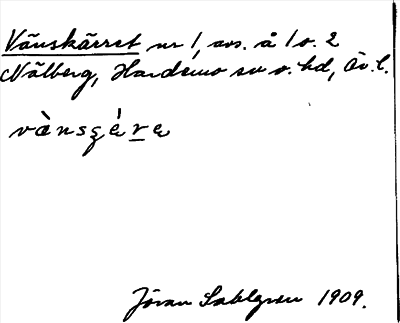 Vänskärret nr 1, avs. å 1 o. 2
Nälberg, Hardemo sn o. hd, Ör. l.
vànsʒére
Jöran Sahlgren 1909.